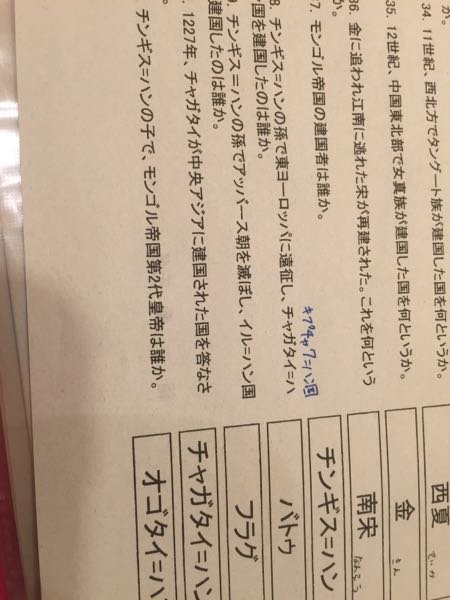 か。
34. 11世紀、西北方でタングート族が建国した国を何というか。
西夏
35. 12世紀、中国東北部で女真族が建国した国を何というか。
金
きん
36. 金に追われ江南に逃れた宋が再建された。これを何という
か。
南宋
なんそう
7. モンゴル帝国の建国者は誰か。
チンギス=ハン
キプチャク=ハン国
8. チンギス=ハンの孫で東ヨーロッパに遠征し、チャガタイ=ハ
国を建国したのは誰か。
バトゥ
チンギス=ハンの孫でアッバース朝を滅ぼし、イル=ハン国
建国したのは誰か。
フラグ
1227年、チャガタイが中央アジアに建国された国を答なさ
チャガタイ=ハン
チンギス=ハンの子で、モンゴル帝国第2代皇帝は誰か。
オゴタイ=ハ